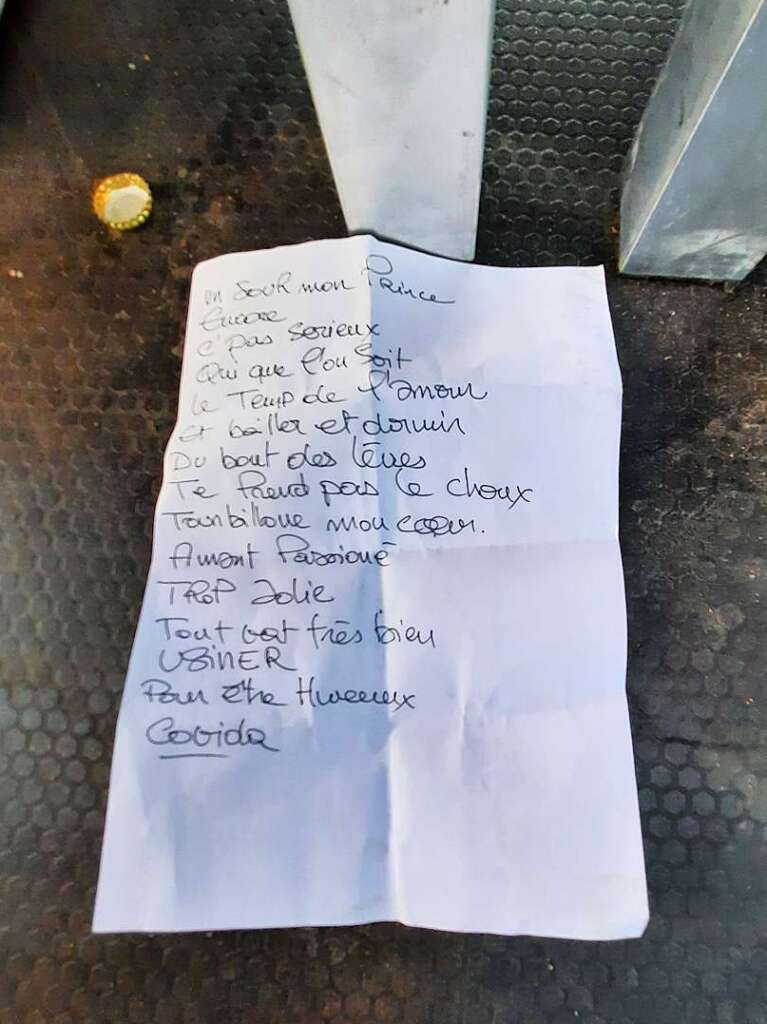 un jour mon Prince
Encore
c'pas serieux
Qui que l'on soit
Le Temp de l'amour
Et bailler et dormir
Du bout des lèves
Te Prend pas le choux
Tourbillone mon coeur.
Amant Passioné
TROP Jolie
Tout vat très bien
USINER
Pour être Hureux
Covida